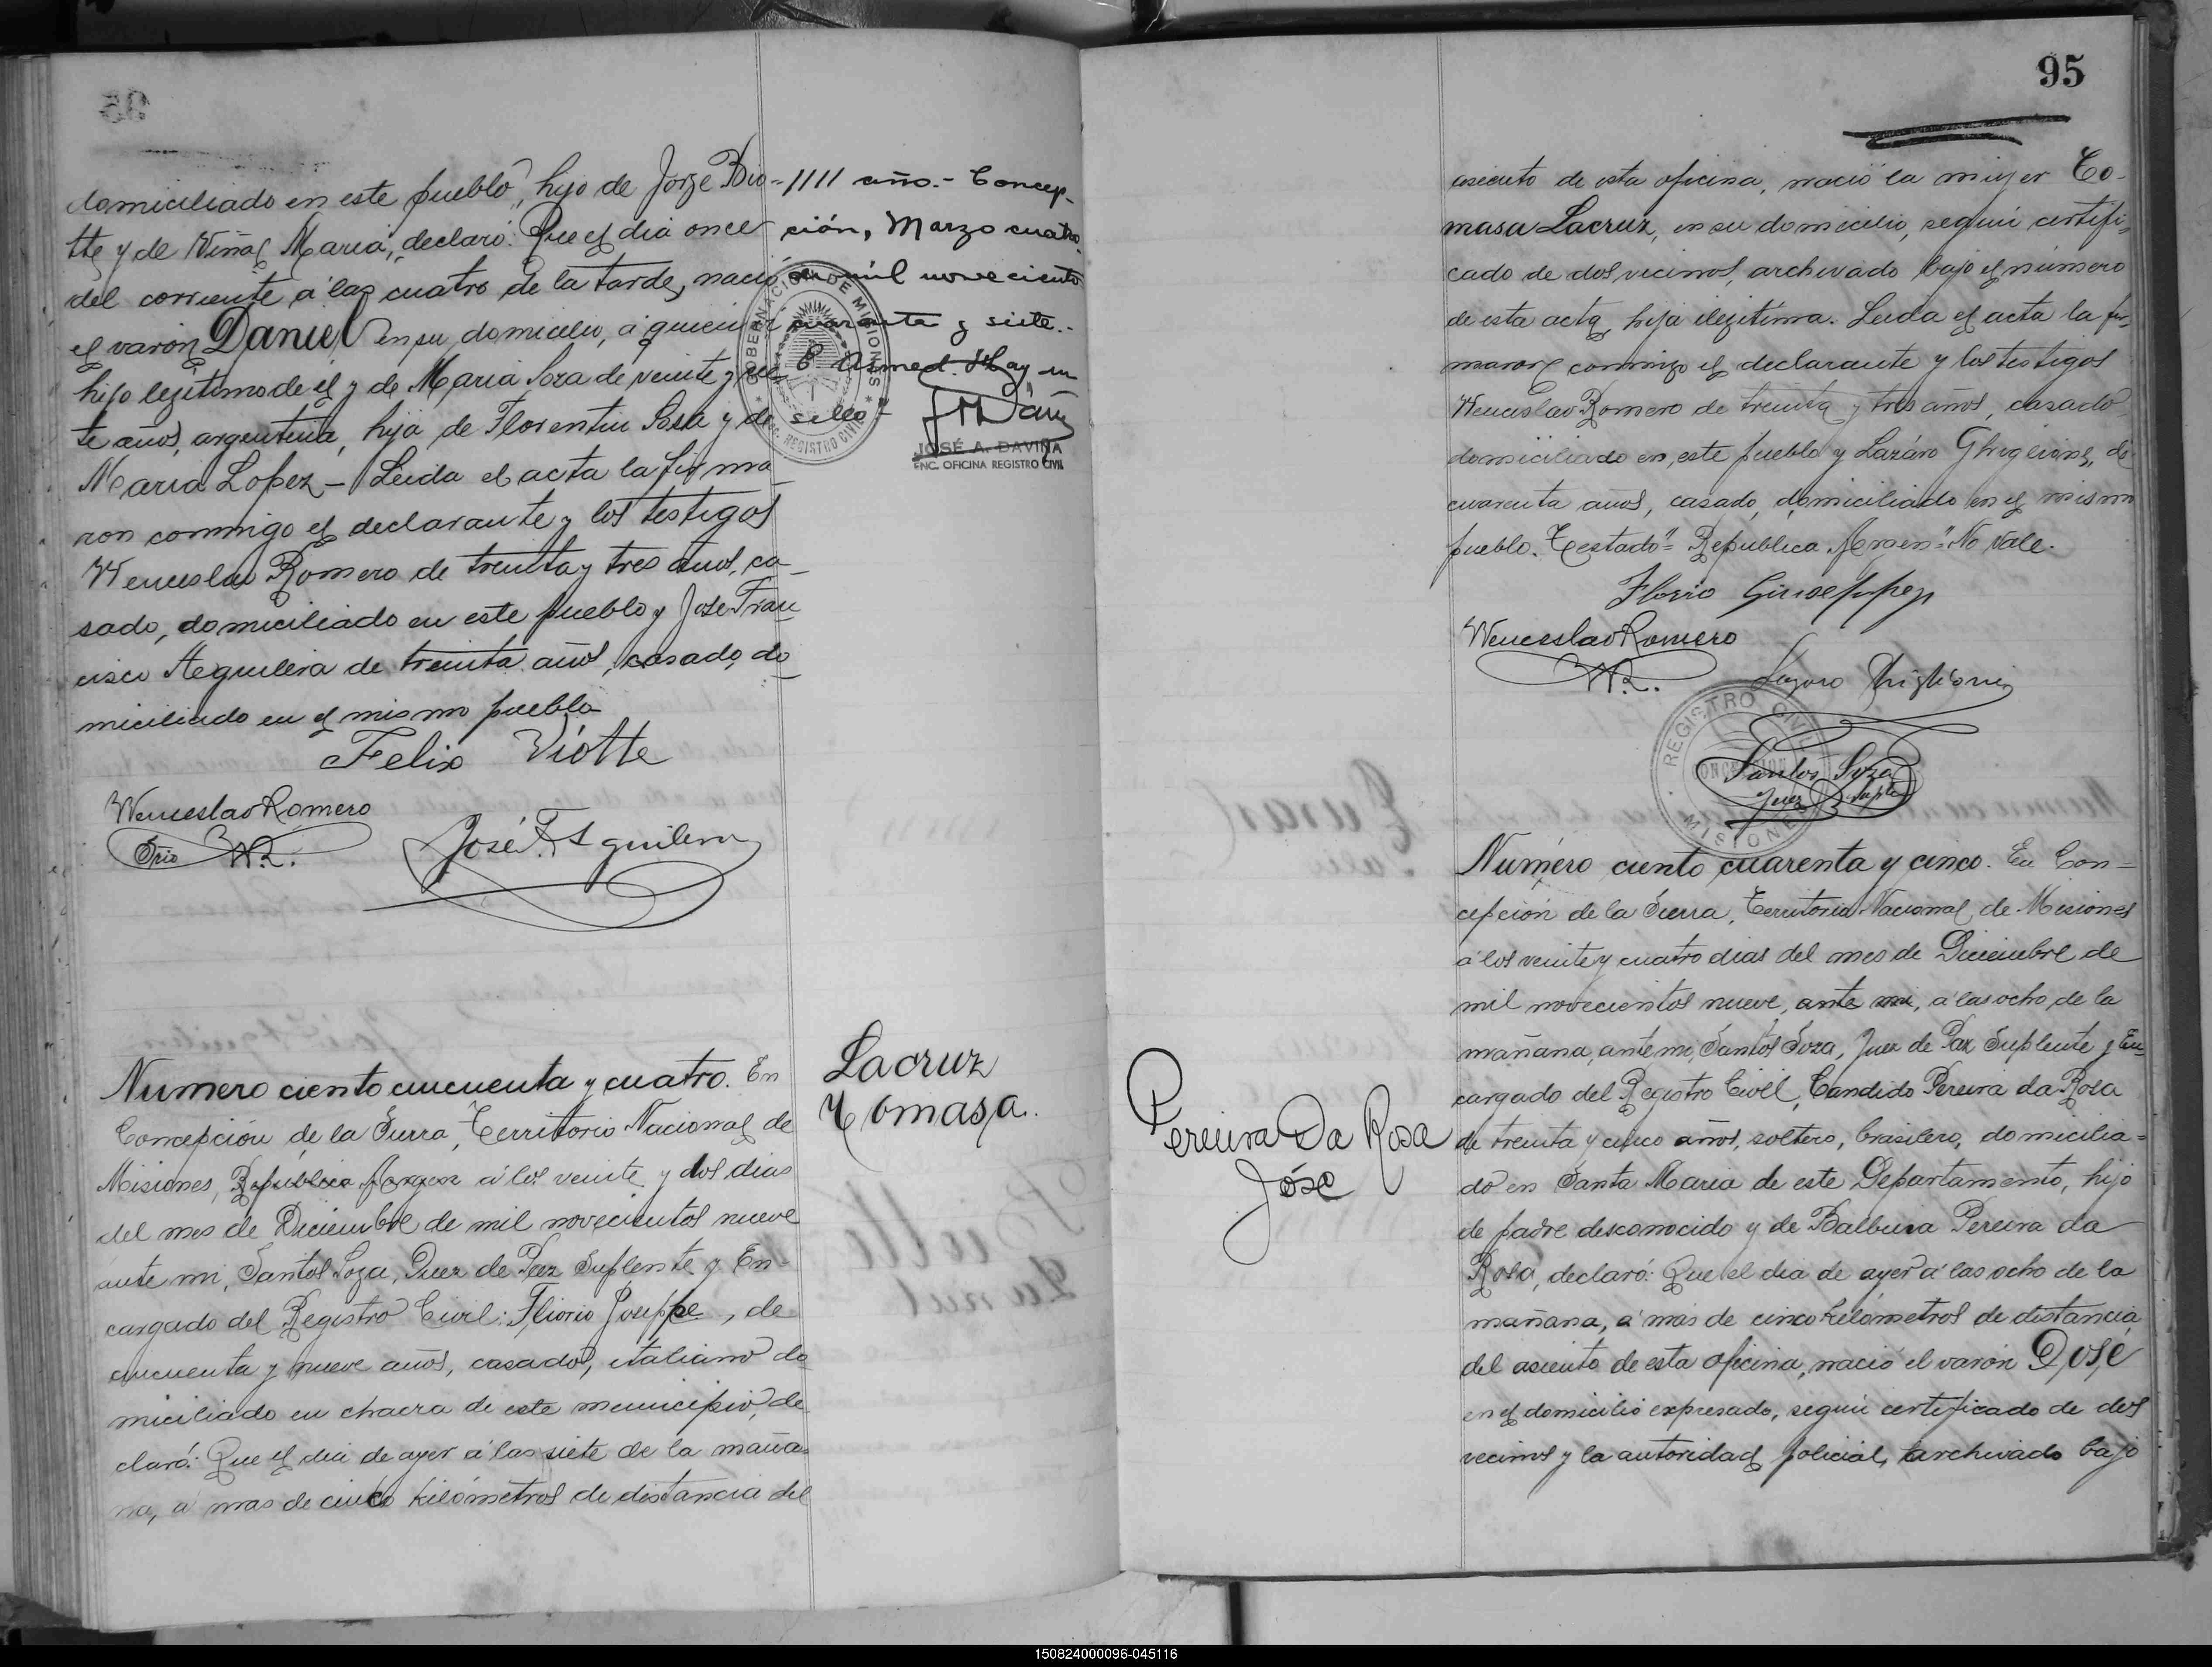 domiciliado en este pueblo, hijo de Jorge Bio-
tte y de Niñas Maria, declaró: Que el dia once
del corriente á las cuatro de la tarde, nació
el varón Daniel en su domicilio, á quien
hijo legitimo de él y de Maria Soza de veinte y sie
te años, argentina, hija de Florentin Soza y de
Maria Lopez - Leida el acta la firma
ron conmigo el declarante y los testigos
Wenceslao Romero de treinta y tres años, ca-
sado, domiciliado en este pueblo y José Fran
cisco Aguilera de treinta años, casado, do
miciliado en el mismo pueblo
Felix Viotte
Wenceslao Romero
Srio W.R.
José F. Aguilera
1111 año.- Concep-
ción, Marzo cuatro
mil novecientos
cuarenta y siete.-
Hay un
sello
JOSÉ A. DAVIÑA
ENC. OFICINA REGISTRO CIVIL
GOBERNACION DE MISIONES
REGISTRO CIVIL
Numero ciento cincuenta y cuatro. En
Concepción de la Sierra, Territorio Nacional de
Misiones, Republica Argen á los veinte y dos dias
del mes de Diciembre de mil novecientos nueve
ante mi, Santos Soza, Juez de Paz Suplente y En-
cargado del Registro Civil: Fliorio Juseppe, de
cincuenta y nueve años, casado, italiano do
miciliado en chacra de este municipio, de
claró: Que el dia de ayer á las siete de la maña-
na, á mas de cinco kilómetros de distancia del
Lacruz
Tomasa.
95
asiento de esta oficina, nació la mujer To-
masa Lacruz, en su domicilio, según certifi-
cado de dos vecinos, archivado bajo el número
de esta acta, hija ilegitima. Leida el acta la fir-
maron conmigo el declarante y los testigos
Wenceslao Romero de treinta y tres años, casado
domiciliado en este pueblo y Lazáro Ghiglione, de
cuarenta años, casado, domiciliado en el mismo
pueblo. Testado "Republica Argen" No vale.
Florio Giuseppe
Wenceslao Romero
W.R.
Lazaro Ghiglione
REGISTRO CIVIL
CONCEPCION
MISIONES
Santos Soza
Juez Suplte
Número ciento cuarenta y cinco. En Con-
cepción de la Sierra, Territorio Nacional de Misiones
á los veinte y cuatro dias del mes de Diciembre de
mil novecientos nueve, ante mi, á las ocho de la
mañana, ante mi, Santos Soza, Juez de Paz Suplente y En-
cargado del Registro Civil, Candido Pereira da Rosa
de treinta y cinco años, soltero, brasilero, domicilia-
do en Santa Maria de este Departamento, hijo
de padre desconocido y de Balbina Pereira da
Rosa, declaró: Que el dia de ayer á las ocho de la
mañana, á mas de cinco kilómetros de distancia
del asiento de esta oficina, nació el varón José
en el domicilio expresado, según certificado de dos
vecinos y la autoridad policial, archivado bajo
Pereira Da Rosa
José
150824000096-045116